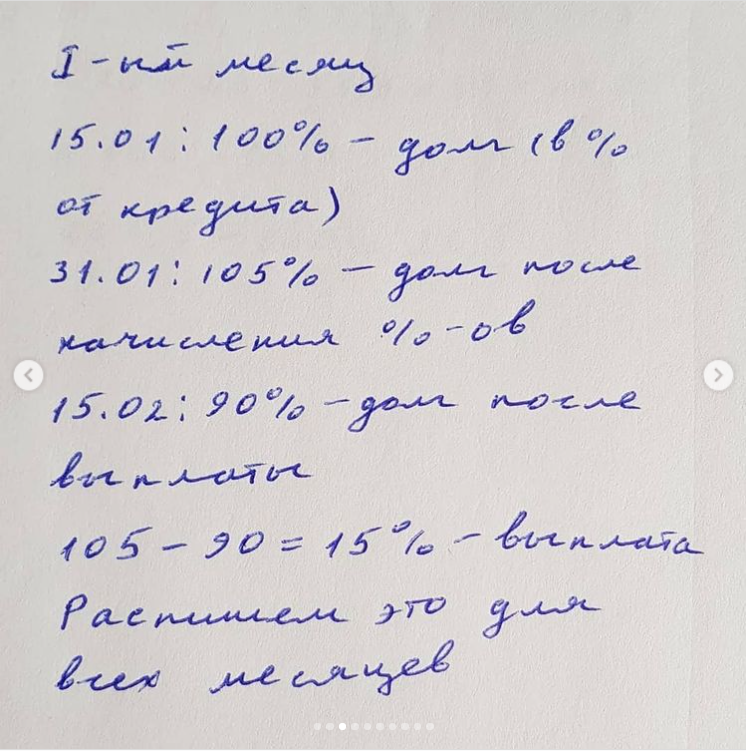 I-ый месяц
15.01: 100% – долг (в %
от кредита)
31.01: 105% – долг после
начисления %-ов
15.02: 90% – долг после
выплаты
105 – 90 = 15% – выплата
Распишем это для
всех месяцев